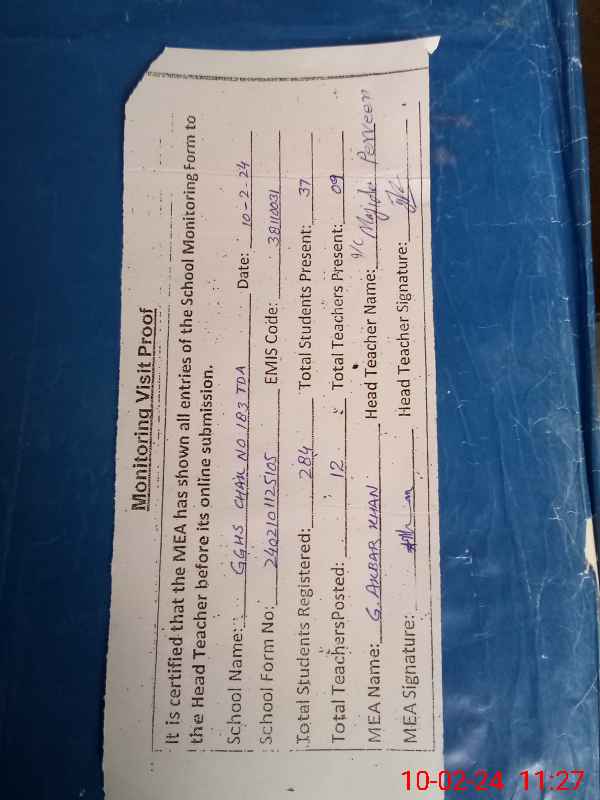 Monitoring Visit Proof
It is certified that the MEA has shown all entries of the School Monitoring Form to
the Head Teacher before its online submission.
School Name: GGHS CHAK NO 183 TDA Date: 10-2-24
School Form No: 2402101125105 EMIS Code: 38110031
Total Students Registered: 284 Total Students Present: 37
Total TeachersPosted: 12 Total Teachers Present: 09
MEA Name: G. AKBAR KHAN Head Teacher Name: I/C Majida Perveen
MEA Signature: Head Teacher Signature:
10-02-24 11:27